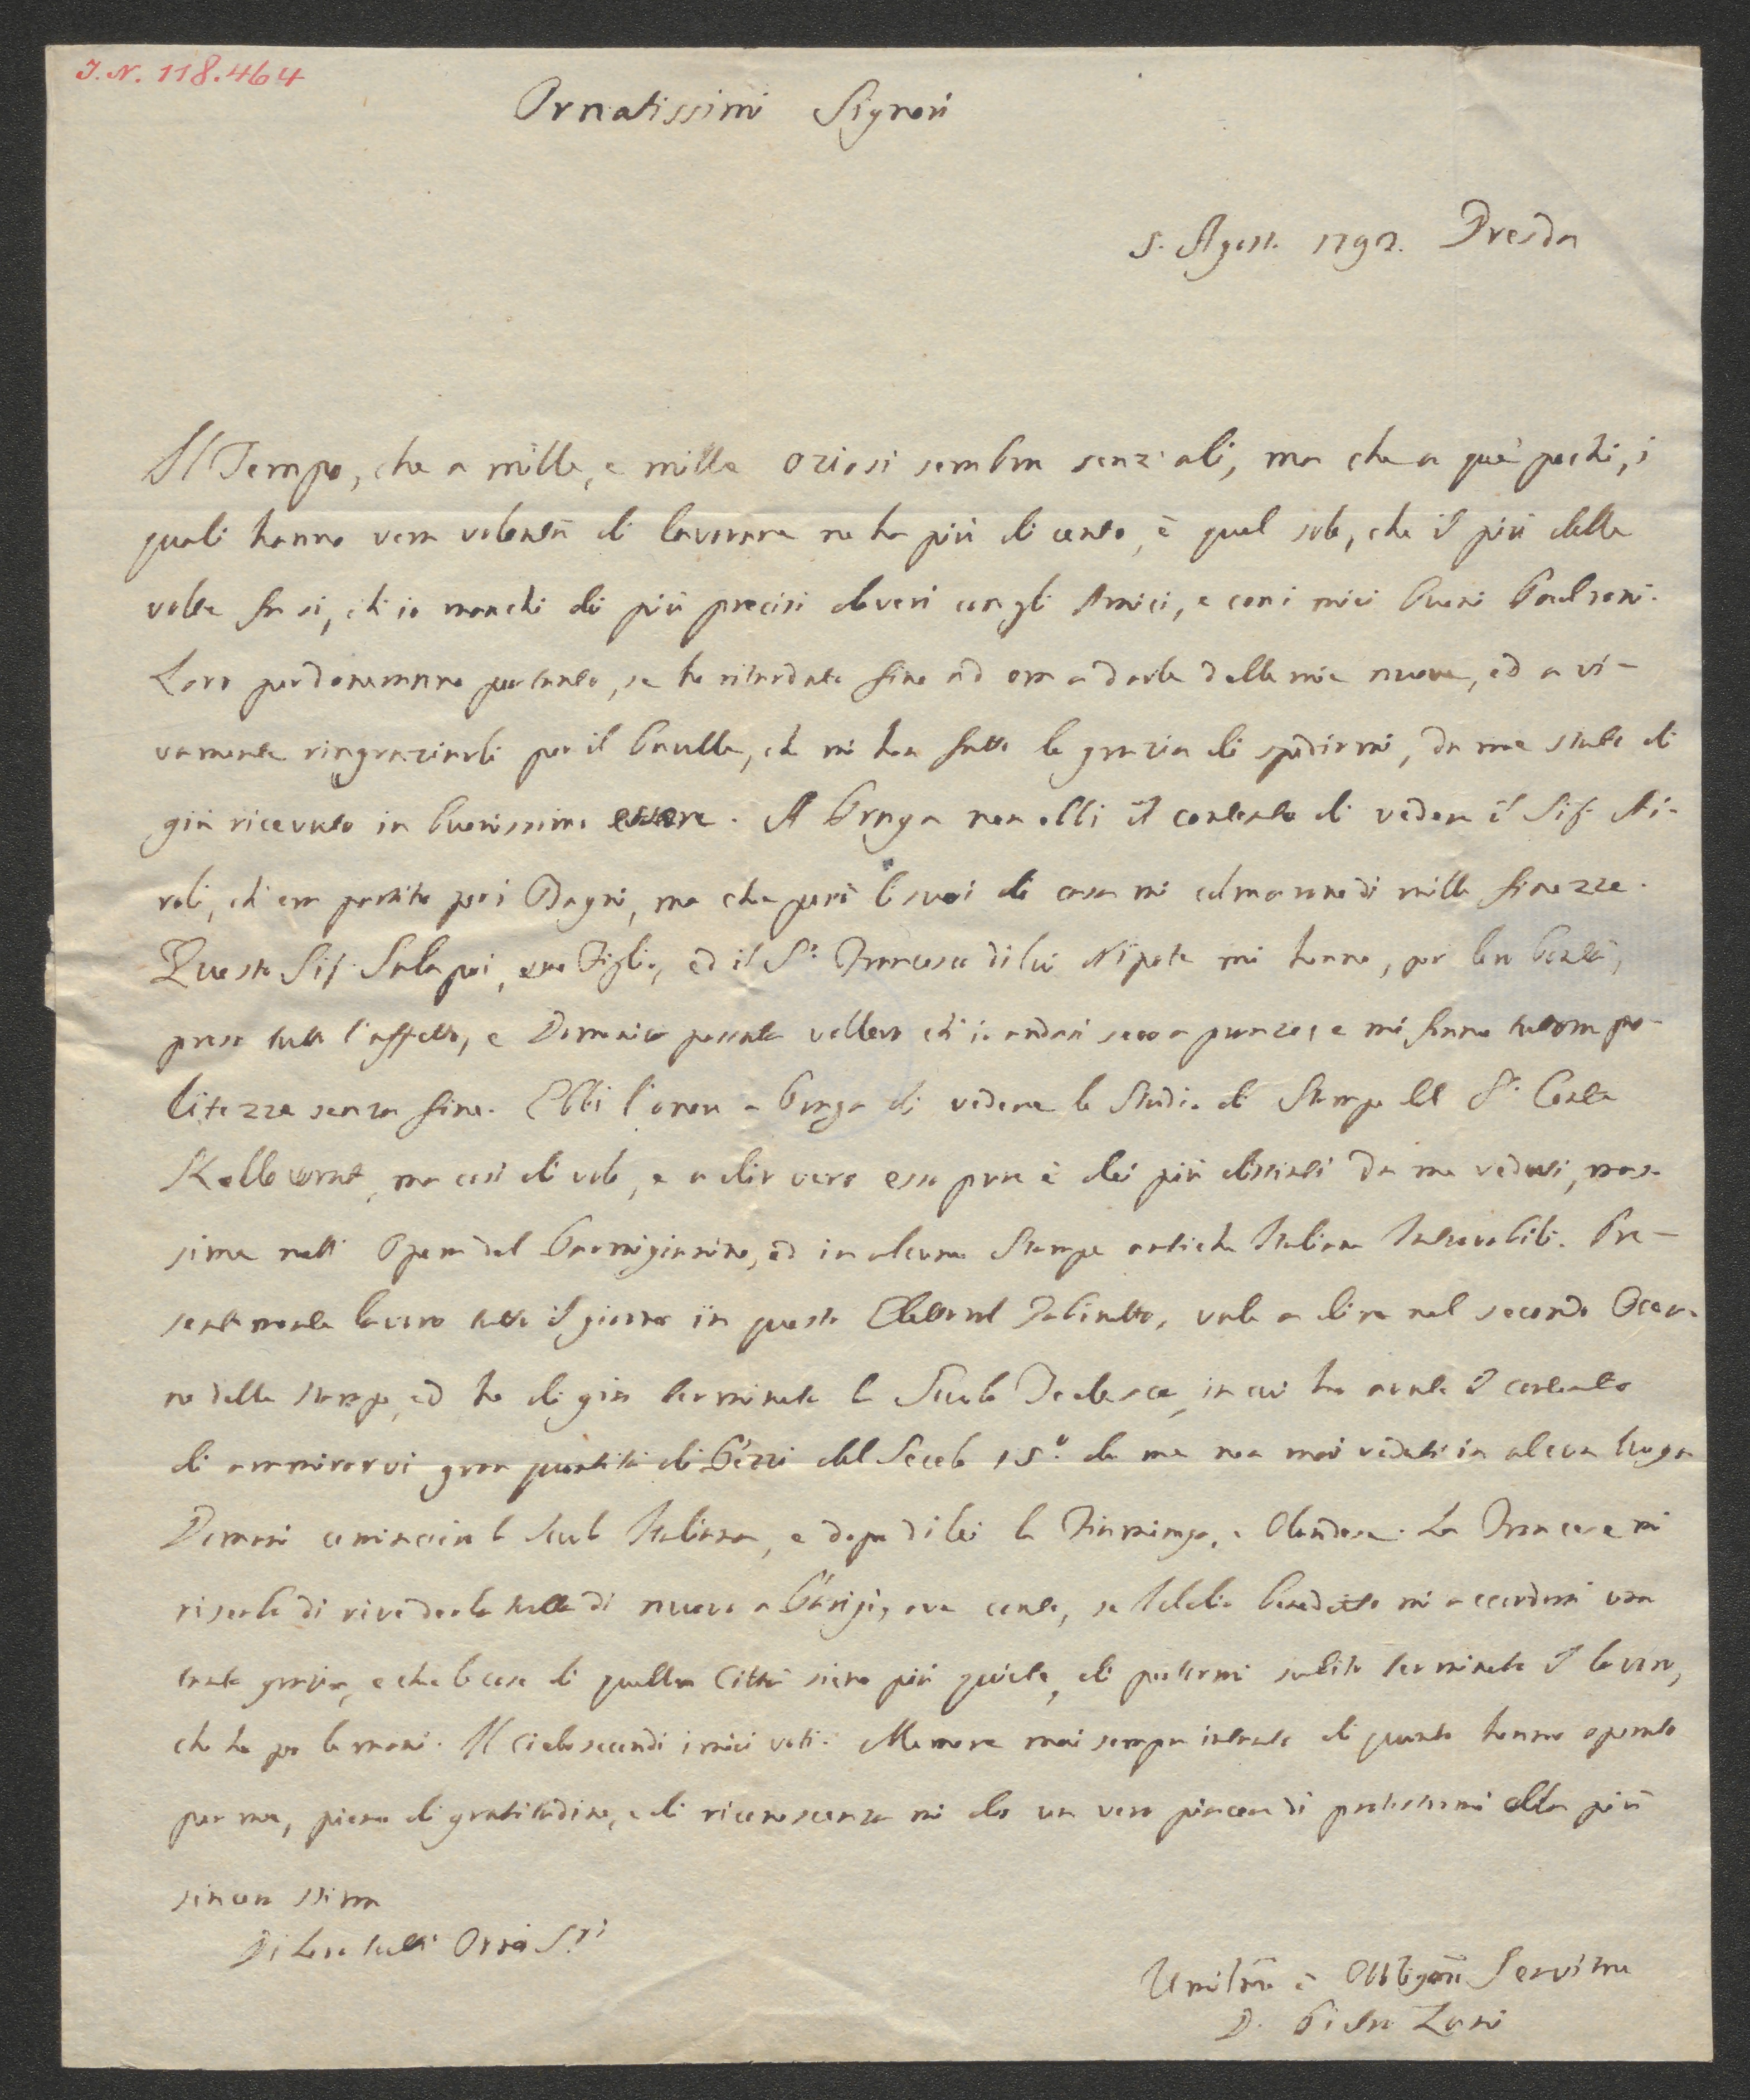 I. N. 118.464
Ornatissimi Signori
5. Agost. 1792. Dresda
Il Tempo, che a mille, e mille oziosi sembra senz'ali, ma che a que' pochi, i
quali hanno vera volontà di lavorare ne ha più di cento, è quel solo, che il più delle
volte fa sì, ch'io manchi di più precisi doveri cogli Amici, e con i miei buoni Padroni.
Loro perdoneranno pertanto, se ho ritardato fino ad ora a darle delle mie nuove, ed a vi-
vamente ringraziarli per il Baulle, che mi han fatto la grazia di spedirmi, da me stato di
già ricevuto in buonissimo essere. A Praga non ebbi il contento di vedere il Sig. Ai-
roli, ch'era partito per i Bagni, ma che però li suoi di casa mi colmarono di mille finezze.
Questo Sig. Salapoi, suo Figlio, ed il Sr. Francesco di lui Nipote mi hanno, per loro bontà,
preso tutto l'affetto, e Domenica passata vollero ch'io andassi seco a pranzo, e mi fanno tuttora po-
litezze senza fine. Ebbi l'onore a Praga di vedere lo Studio di Stampe del Sr. Conte
Kollowrat, ma così di volo, e a dir vero esso pure è dei più distinti da me veduti, mas-
sime nell' Opera del Parmigianino, ed in alcune Stampe antiche Italiane Introvabili. Pre-
sentemente lavoro tutto il giorno in questo Elettoral Gabinetto, vale a dire nel secondo Ocea-
no delle stampe, ed ho di già terminata la Scuola Tedesca, in cui ho avuto il contento
di ammirarvi gran quantità di Pezzi del Secolo 15.º da me non mai veduti in alcun luogo
Domani comincerò la Scuola Italiana, e dopo di lei la Fiaminga, e Olandese. La Francese mi
riserbo di rivederla tutta di nuovo a Parigi, ove conto, se Iddio benedetto mi accorderà una
tanta grazia, e che le cose di quella Città sieno più quiete, di portarmi subito terminato il lavoro,
che ho per le mani. Il Cielo secondi i miei voti. Memore mai sempre intanto di quanto hanno operato
per me, pieno di gratitudine, e di riconoscenza mi do un vero piacere di protestarmi colla più
sincera stima
Di Loro tutti Ornmi Sri
Umilmo e Obbligmo Servitore
D. Pietro Zani